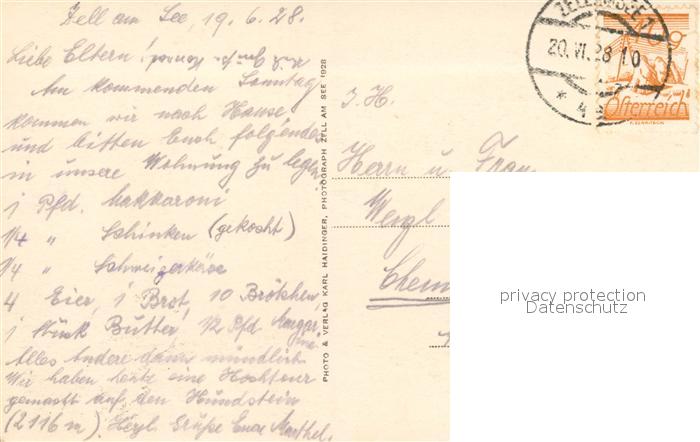 Zell am See, 19.6.28.
Liebe Eltern!
Am kommenden Sonntag
kommen wir nach Hause
und bitten Euch folgendes
in unsere Wohnung zu legen
1 Pfd. Makkaroni
1/4 " Schinken (gekocht)
1/4 " Schweizerkäse
4 Eier, 1 Brot, 10 Brötchen,
1 Stück Butter, 1/2 Pfd Margarine
Alles Andere dann mündlich
Wir haben heute eine Hochtour
gemacht auf den Hundstein
(2116 m). Herzl. Grüße Eure Marthel.
PHOTO & VERLAG KARL HAIDINGER, PHOTOGRAPH ZELL AM SEE 1928
ZELL AM SEE 1
20.VI.28 10
* 4
Österreich
Herrn u. Frau
Weigl
Chem
privacy protection
Datenschutz